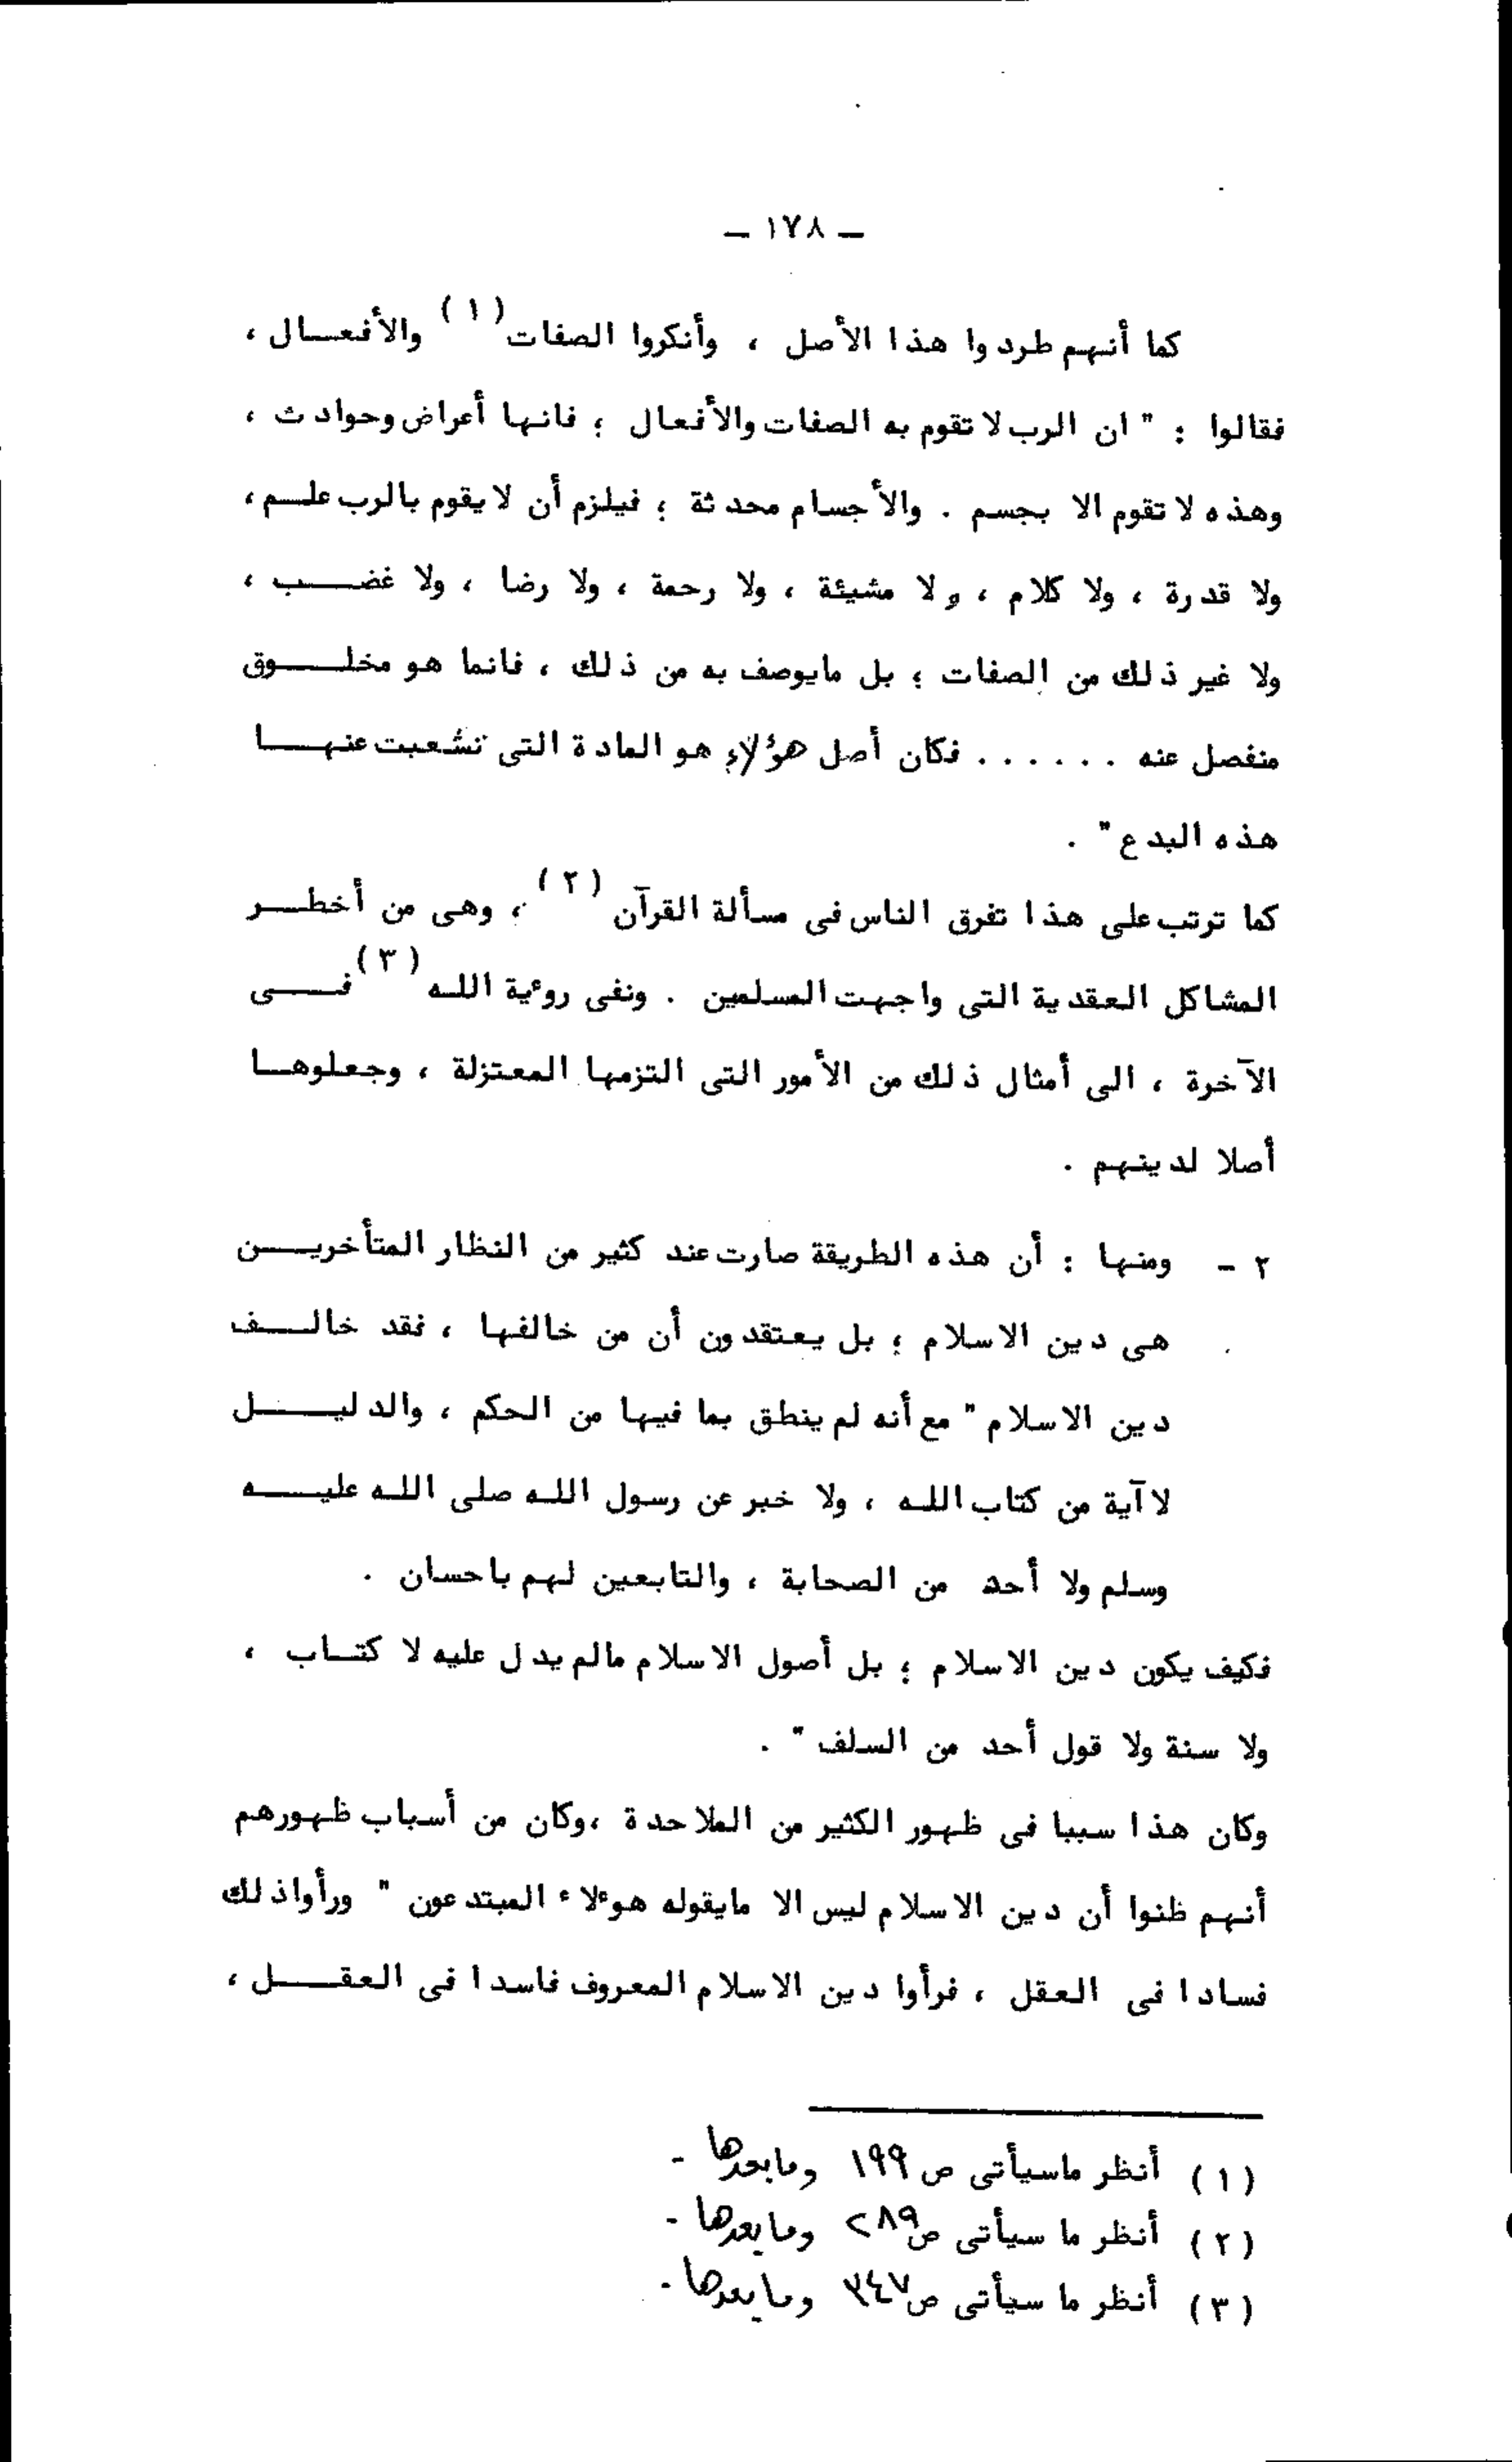 ـ ١٧٨ ـ
كما أنهم طردوا هذا الأصل ، وأنكروا الصفات (١) والأفعال ،
فقالوا : " ان الرب لا تقوم به الصفات والأفعال ؛ فانها أعراض وحوادث ،
وهذه لا تقوم الا بجسم . والأجسام محدثة ؛ فيلزم أن لا يقوم بالرب علم ،
ولا قدرة ، ولا كلام ، ولا مشيئة ، ولا رحمة ، ولا رضا ، ولا غضب ،
ولا غير ذلك من الصفات ؛ بل مايوصف به من ذلك ، فانما هو مخلوق
منفصل عنه . . . . . . فكان أصل هؤلاء هو المادة التى تشعبت عنها
هذه البدع " .
كما ترتب على هذا تفرق الناس فى مسألة القرآن (٢) ، وهى من أخطر
المشاكل العقدية التى واجهت المسلمين . ونفى روءية الله (٣) فى
الآخرة ، الى أمثال ذلك من الأمور التى التزمها المعتزلة ، وجعلوها
أصلا لدينهم .
٢ - ومنها : أن هذه الطريقة صارت عند كثير من النظار المتأخرين
هى دين الاسلام ؛ بل يعتقدون أن من خالفها ، فقد خالف
دين الاسلام " مع أنه لم ينطق بما فيها من الحكم ، والدليل
لا آية من كتاب الله ، ولا خبر عن رسول الله صلى الله عليه
وسلم ولا أحد من الصحابة ، والتابعين لهم باحسان .
فكيف يكون دين الاسلام ؛ بل أصول الاسلام مالم يدل عليه لا كتاب ،
ولا سنة ولا قول أحد من السلف " .
وكان هذا سببا فى ظهور الكثير من الملاحدة ،وكان من أسباب ظهورهم
أنهم ظنوا أن دين الاسلام ليس الا مايقوله هوءلاء المبتدعون " ورأوا ذلك
فسادا فى العقل ، فرأوا دين الاسلام المعروف فاسدا فى العقل ،
(١) أنظر ماسيأتى ص ١٩٩ ومابعدها -
(٢) أنظر ما سيأتى ص ٢٨٩ ومابعدها -
(٣) أنظر ما سيأتى ص ٣٤٧ ومابعدها -